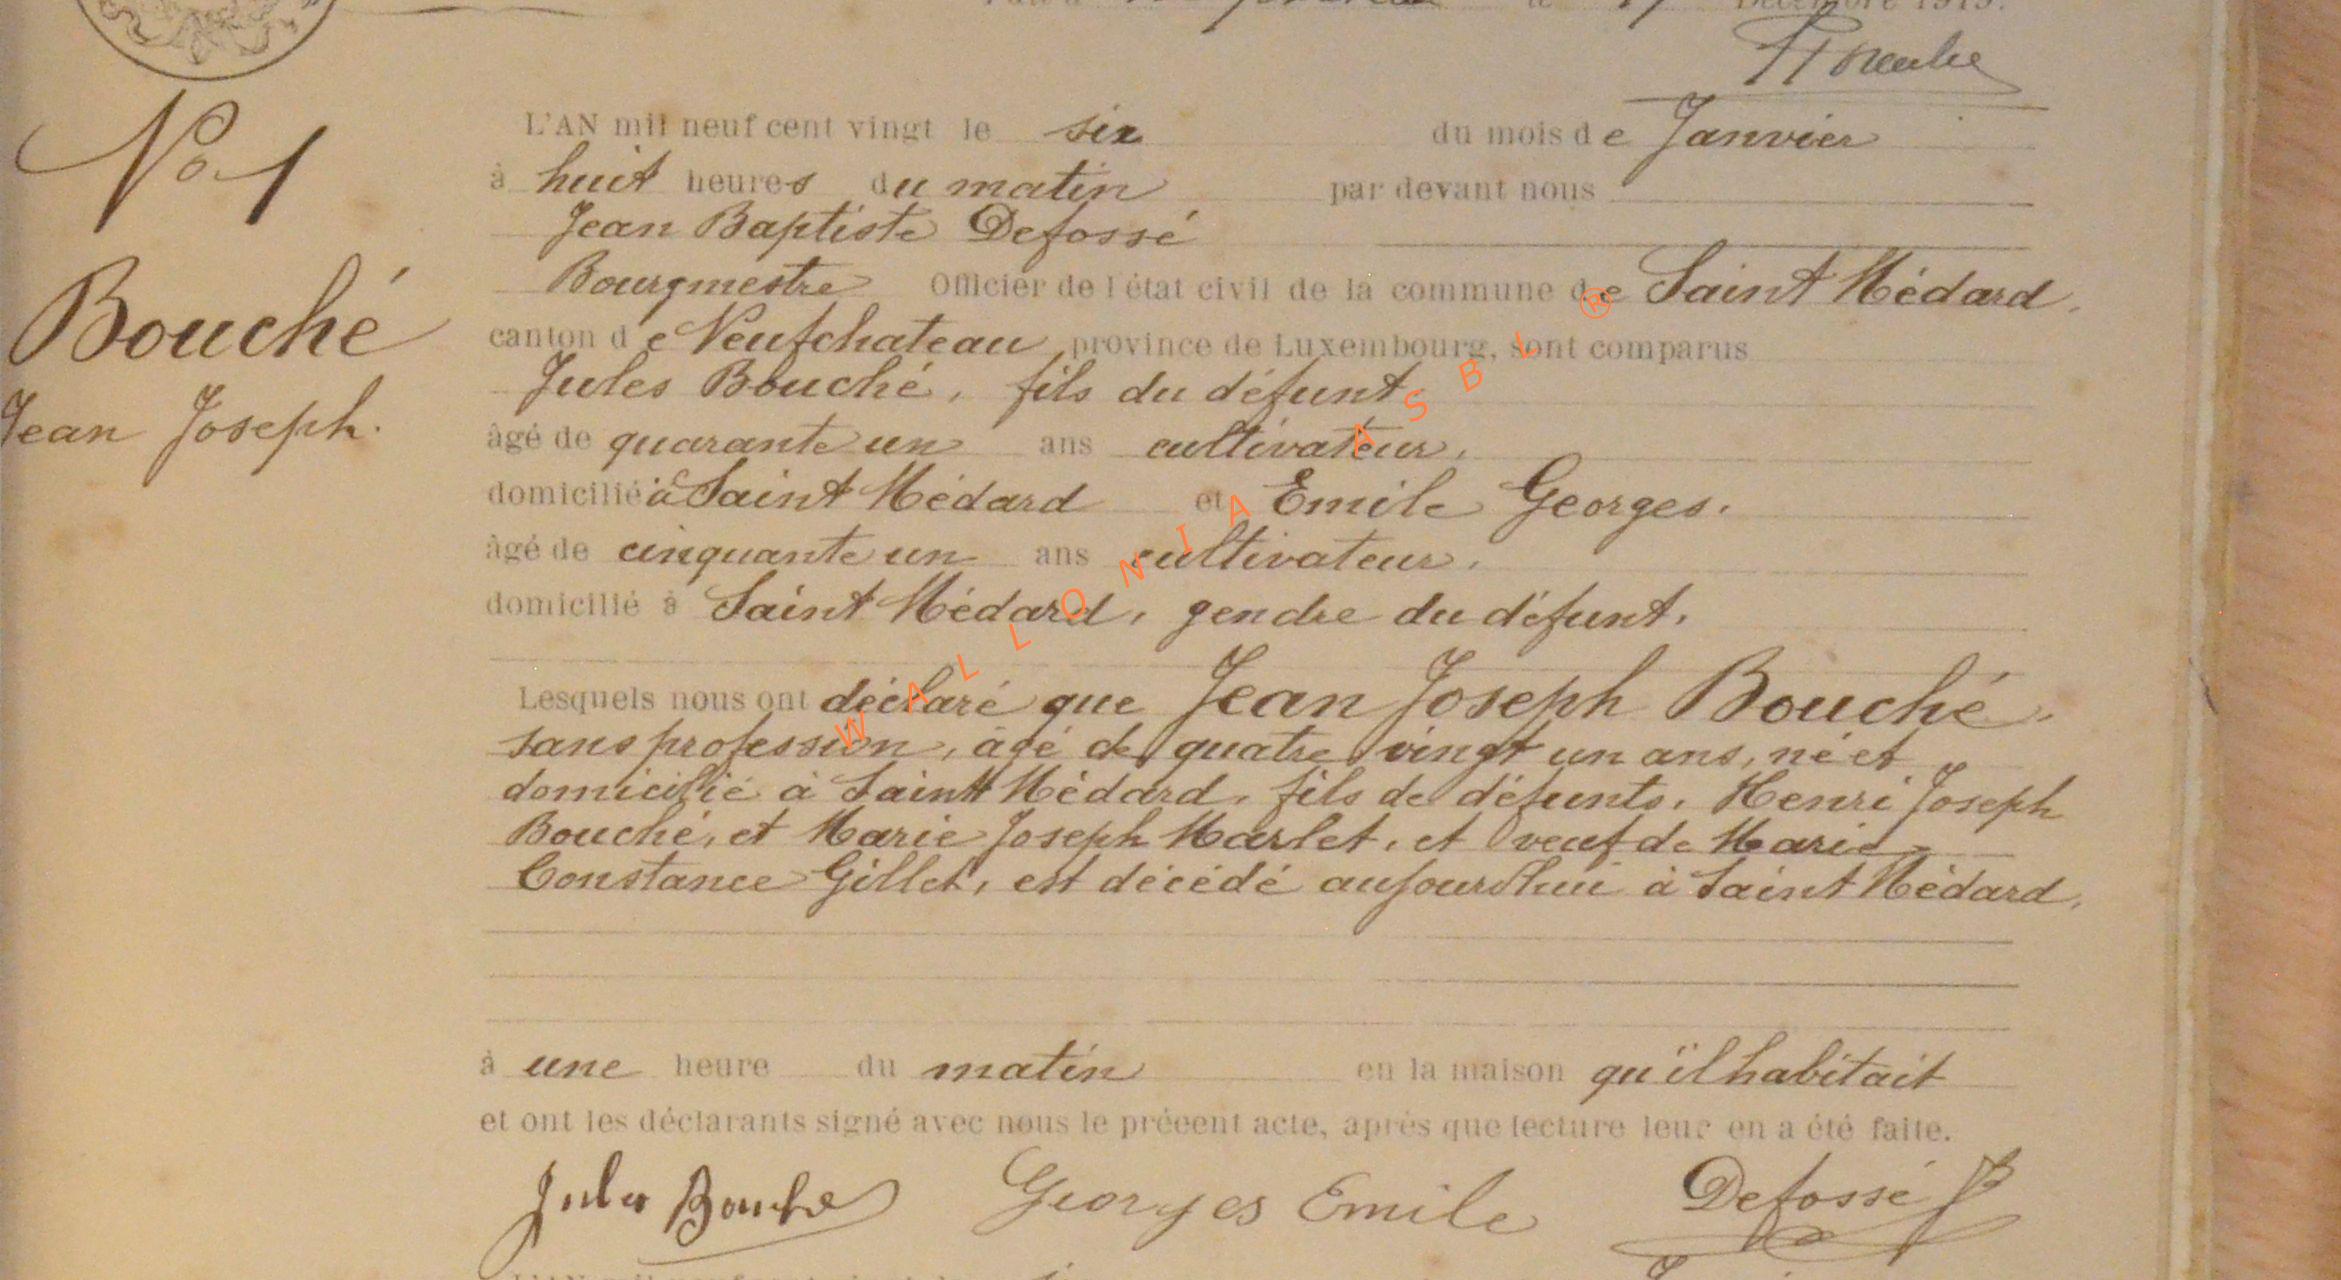 Décembre 1919.
No 1
Bouché
Jean Joseph.
L'AN mil neuf cent vingt le six du mois de Janvier
à huit heures du matin par devant nous
Jean Baptiste Defossé
Bourgmestre Officier de l'état civil de la commune de Saint Médard.
canton de Neufchateau province de Luxembourg, sont comparus
Jules Bouché, fils du défunt.
âgé de quarante un ans cultivateur.
domicilié à Saint Médard et Emile Georges.
âgé de cinquante un ans cultivateur.
domicilié à Saint Médard, gendre du défunt.
Lesquels nous ont déclaré que Jean Joseph Bouché.
sans profession, âgé de quatre vingt un ans, né et
domicilié à Saint Médard, fils de défunts, Henri Joseph
Bouché, et Marie Joseph Marlet, et veuf de Marie
Constance Gillet, est décédé aujourd'hui à Saint Médard.
à une heure du matin en la maison qu'il habitait
et ont les déclarants signé avec nous le précent acte, après que lecture leur en a été faite.
Jules Bouché Georges Emile Defossé JB
WALLONIA ASBL ®